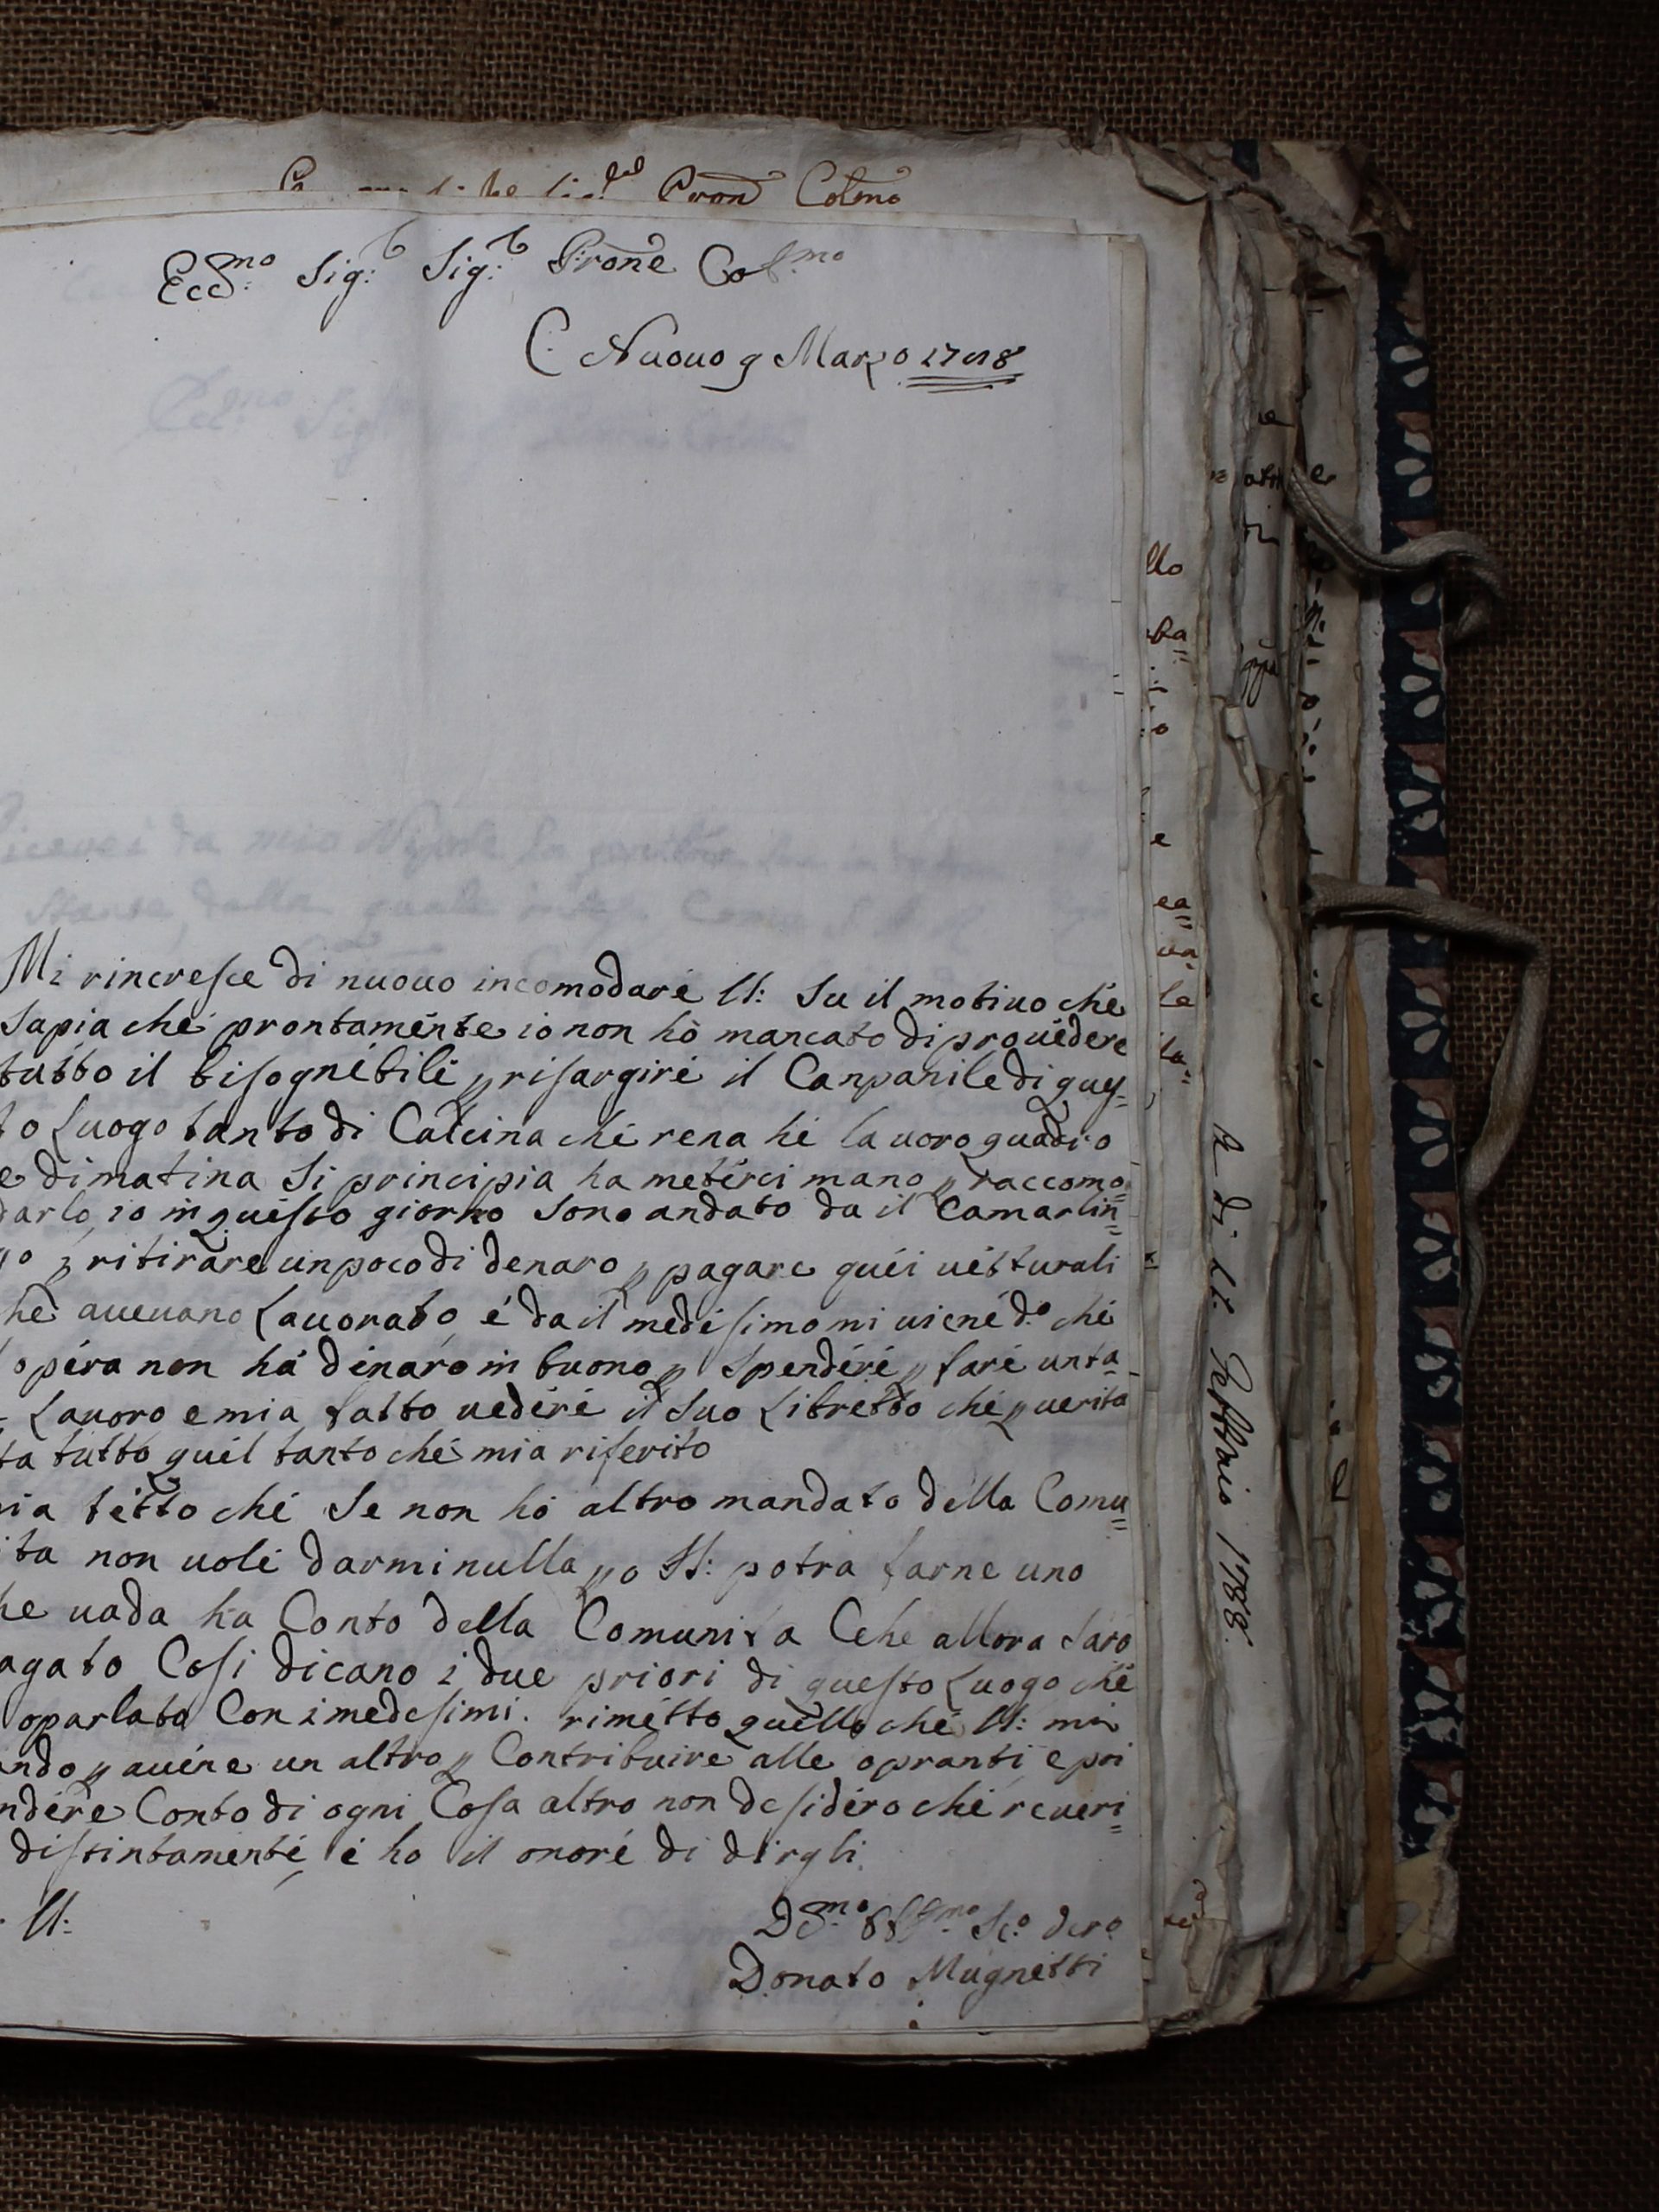 Pron̄ Colmo
Eccmo: Sig:r Sig:r Prone Colmo
C. Nuouo 9 Marzo 1788
Mi rincresce di nuouo incomodare U: Su il motiuo che
Sapia che prontamente io non hò mancato di prouedere
tutto il bisognebile p risargire il Canpanile di ques=
to Luogo tanto di Calcina che rena he lauoro quadro
e dimatina Si principia ha meterci mano p raccomo=
darlo, io in questo giorno Sono andato da il Camarlin=
go p ritirare un poco di denaro p pagare quei uetturali
he aueuano Lauorato, é da il medesimo mi uiene d.o che
opera non há denaro in buono p Spendere p fare unta=
Lauoro e mia fatto uedere il Suo Libretto che p uerita
ta tutto quel tanto che mia riferito
ia detto che Se non hò altro mandato della Comu=
ita non uole darmi nulla p o U: potra farne uno
he uada ha Conto della Comunita Che allora Saro
agato Cosi dicano i due priori di questo Luogo che
o parlato Con i medesimi. rimetto quello che U: mi
ndo p auerne un altro p Contribuire alle opranti e poi
ndere Conto di ogni Cosa altro non desidero che reueri=
distintamente, e ho il onore di dirgli
U:
Donato Mugnetti
llo
ba=
o
e
ea=
ua=
le
ta=
A di 11. Febbraio 1788